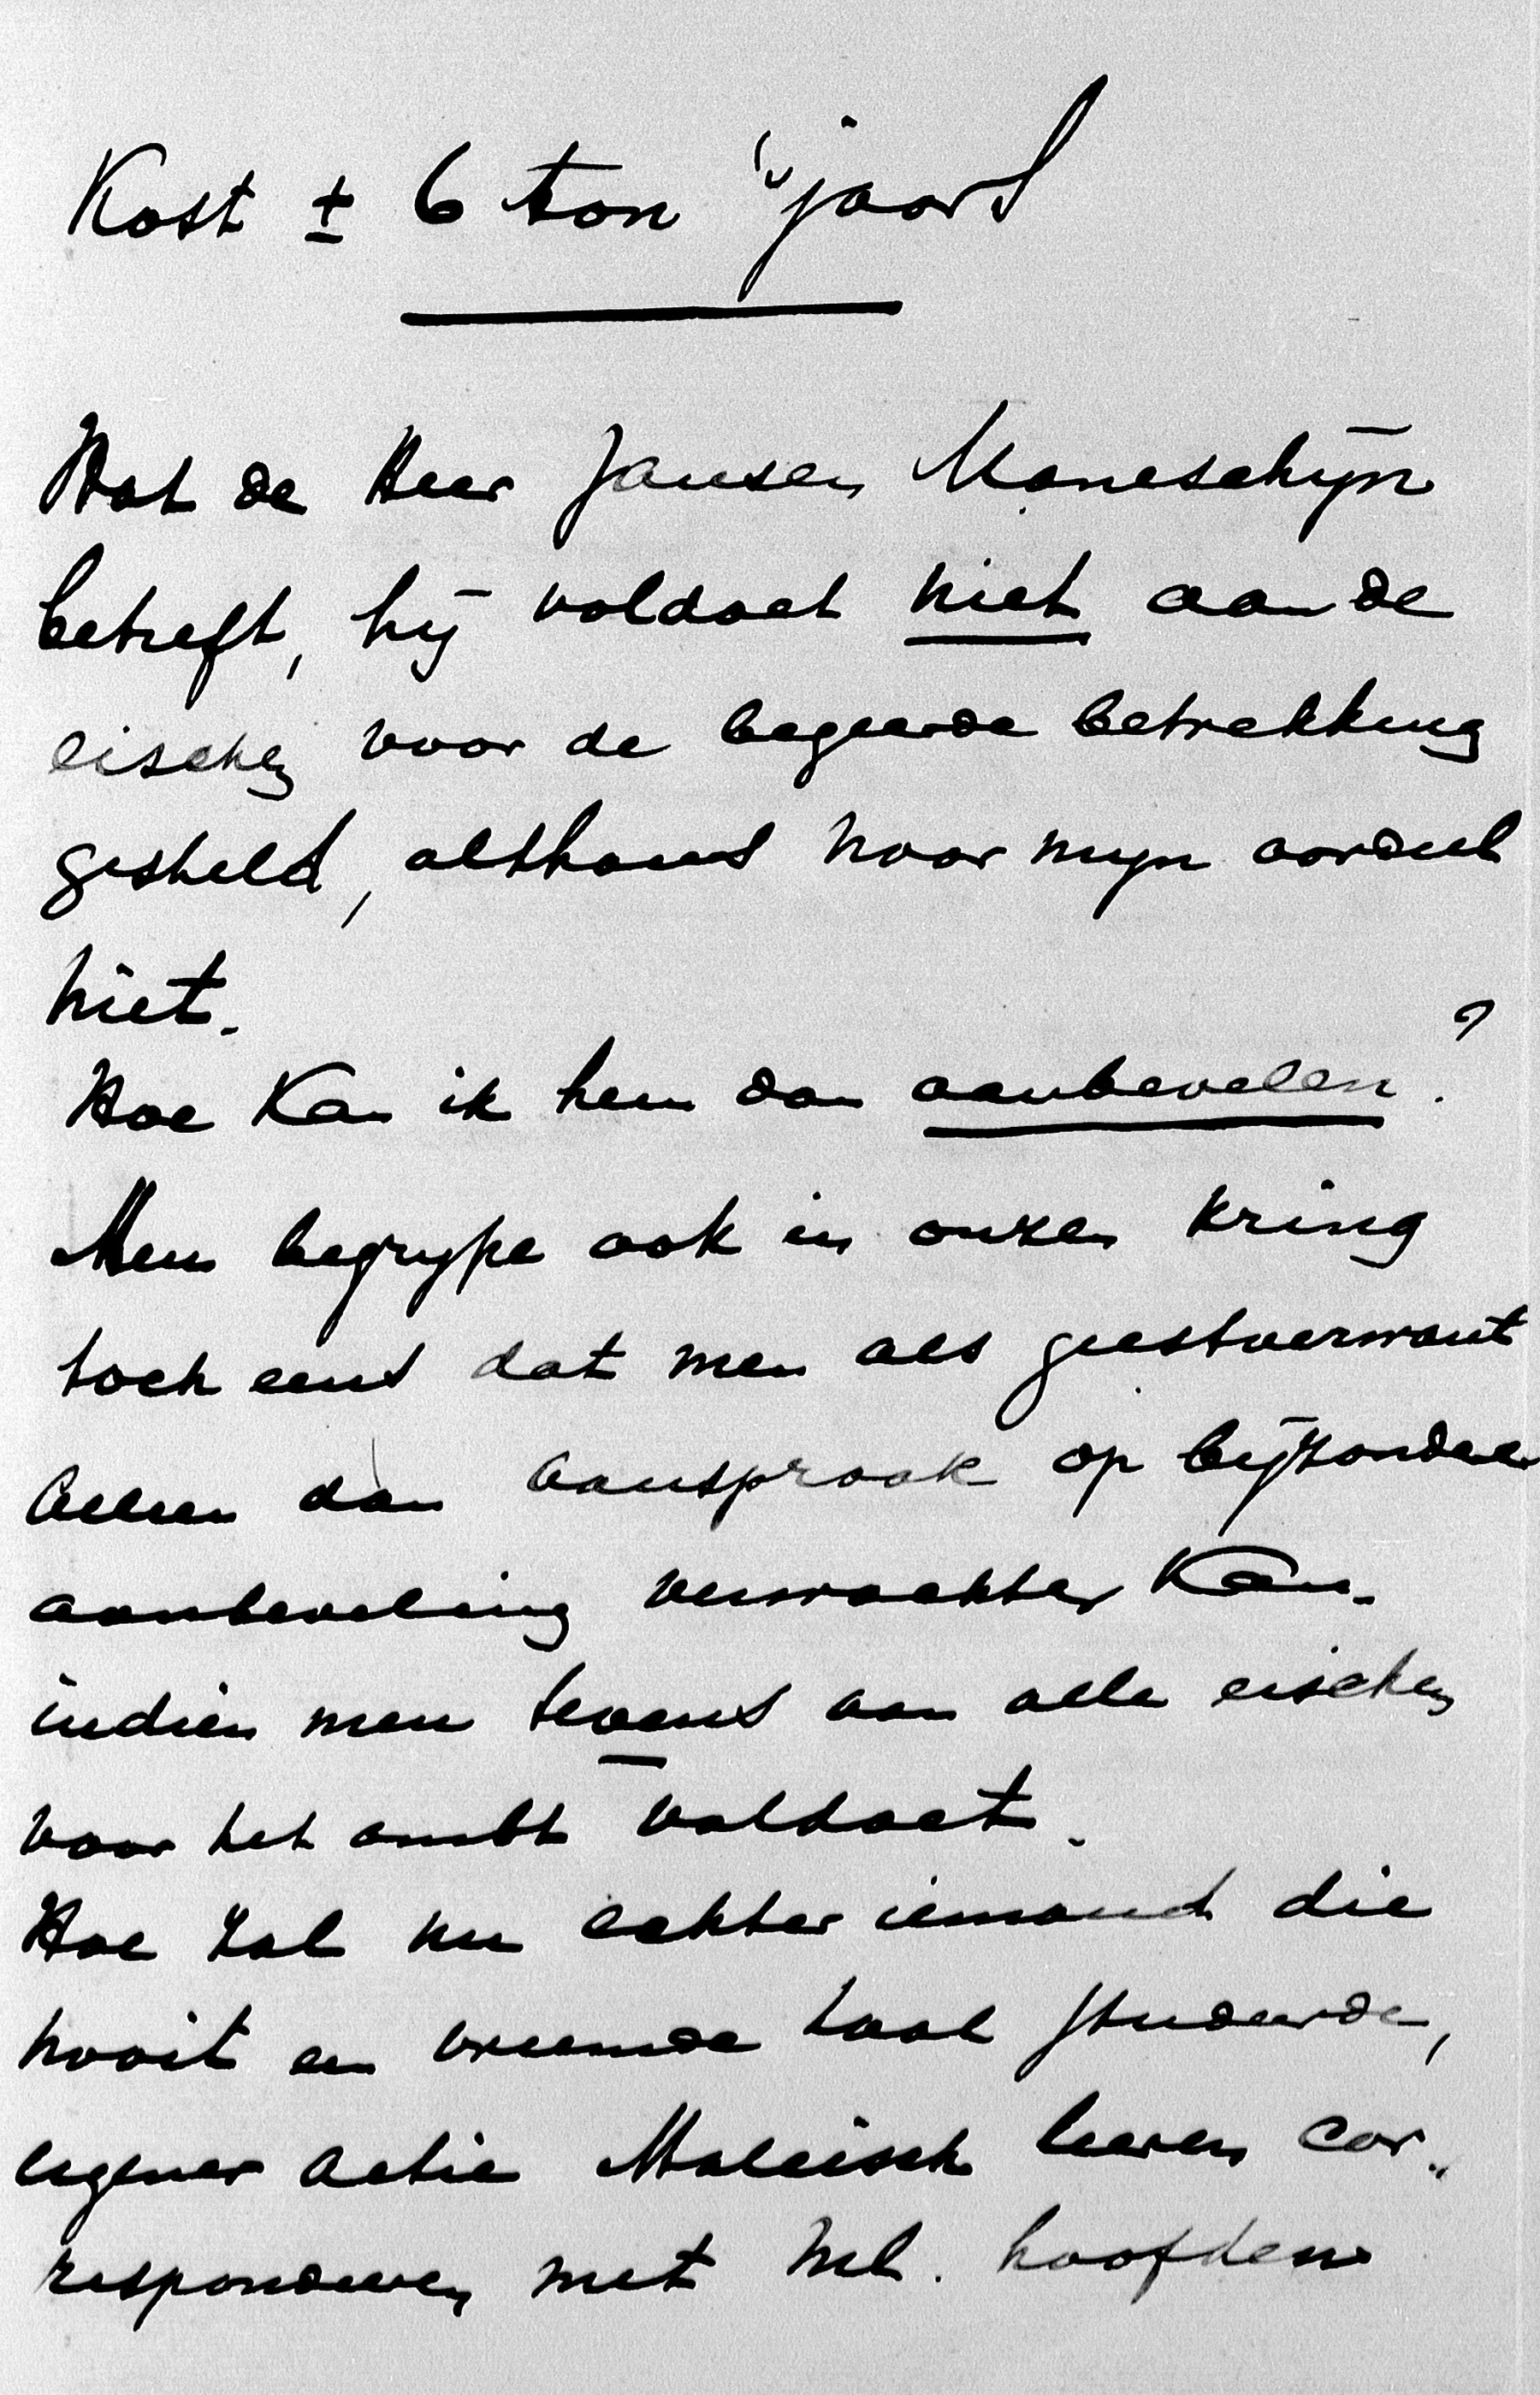 Kost ± 6 ton 's jaars
Wat de Heer Jansen Maneschijn
betreft, hij voldoet niet aan de
eischen voor de begeerde betrekking
gesteld, althans naar mijn oordeel
niet.
Hoe kan ik hem dan aanbevelen?
Men begrijpe ook in onzen kring
toch eens dat men als geestverwant
alleen dan aanspraak op bijzondere
aanbeveling verwachten kan
indien men tevens aan alle eischen
voor het ambt voldoet.
Hoe zal nu echter iemand die
nooit een vreemde taal studeerde,
Maleisch leeren cor„
respondeeren met Inl. hoofden